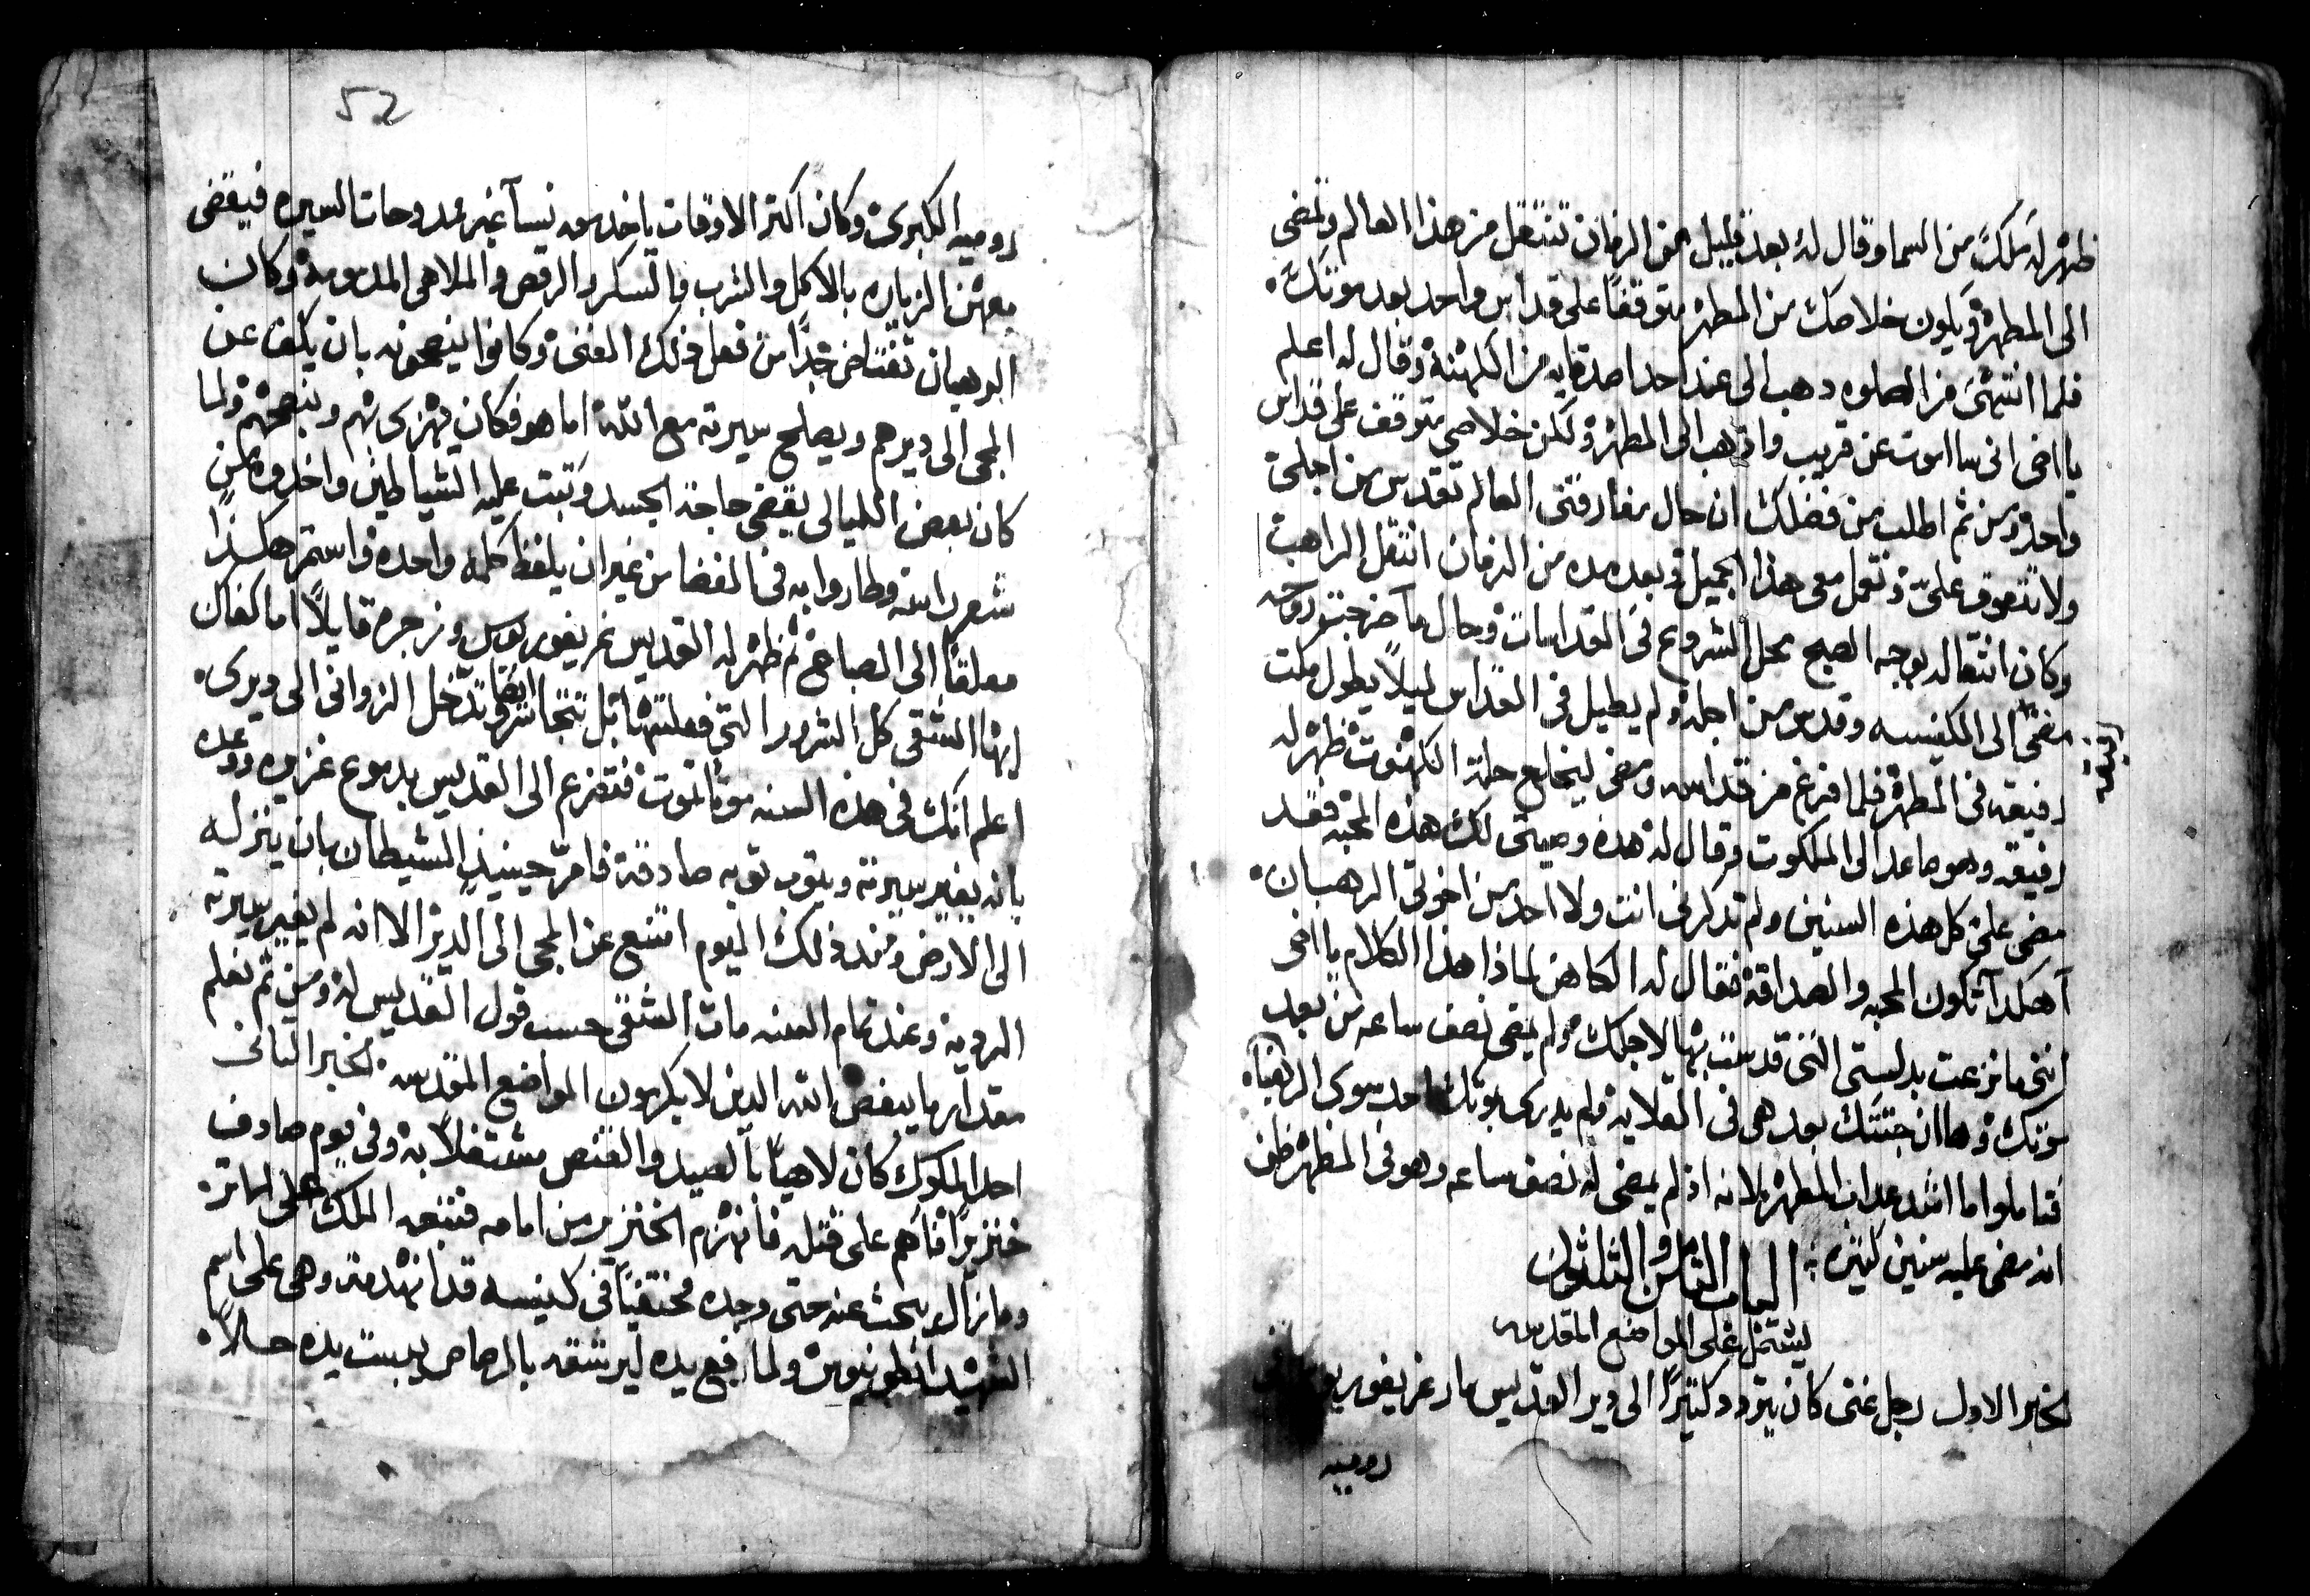 ظهر له ملاك من السما وقال له بعد قليل من الزمان تنتقل من هذا العالم وتمضى
الى المطهر ويكون خلاصك من المطهر متوقفاً على قداس واحد بعد موتك.
فلما انتهى من الصلوه دهب الى عند احد اصدقايه من الكهنة وقال له اعلم
يا اخى انى سااموت عن قريب واذهب الى المطهر ولكن خلاصى متوقف على قداس
واحد ومن ثم اطلب من فضلك ان حال مفارقتى العالم تقدس من اجلى
ولا تتعوق علىّ وتعمل معى هذا الجميل وبعد مده من الزمان انتقل الراهب
وكان انتقاله بوجه الصبح محل الشروع فى القداسات وحال ما خرجت روحه
مضى الى الكنيسه وقدس من اجله ولم يطيل فى القداس ليلاً يطول مكت
رفيقه فى المطهر فلما فرغ من قداسه ومضى ليخلع حلة الكهنوت ظهر له
رفيقه وهو صاعد الى الملكوت وقال له هده وصيتى لك هذه المحبه فقد
مضى علىّ كل هذه السنين ولم تدكرنى انت ولا احد من اخوتى الرهبان.
آهكدا تكون المحبه والصداقه فقال له الكاهن لماذا هذا الكلام يا اخى
اننى ما نزعت بدلستى التى قدست بها لاجلك ولم يمضى نصف ساعه من بعد
موتك وها ان جتتك بعد هى فى القلايه ولم يدرى بموتك احد سوى الرهبان
فتاملوا ما اشد عداب المطهر لانه اذ لم يمضى له نصف ساعه وهو فى المطهر ظن
انه مضى عليه سنين كتيره.
الباب التامن والتلتون
يشتمل على المواضع المقدسه
الخبر الاول رجل غنى كان يتردد كتيراً الى دير القديس مار غريغوريوس فى
روميه
52
روميه الكبرى وكان اكتر الاوقات ياخد معه نسآ غير ممدوحات السيره فيقضى
معهن الزياره بالاكل والشرب والسكر والرقص والملاهى المدمومة وكان
الرهبان تغتاض جداً من فعل ذلك الغنى وكانوا ينصحونه بان يكف عن
المجى الى ديرهم ويصلح سيرته مع الله اما هو فكان يهزى بهم وبنصحهم ولما
كان بعض الليالى يقضى حاجة الجسد وتبت عليه الشياطين واخدوه من
شعر راسه وطاروا به فى الفضا من غير ان يلفظ كلمه واحده واستمر هكذا
معلقاً الى الصباح ثم ظهر له القديس غريغوريوس وزجره قايلاً اما كفاك
ايها الشقى كل الشرور التى فعلتها بل تتجاسر ايضاً فى تدخل الزوانى الى ديرى.
اعلم انك فى هذه السنه موتاً تموت فتضرع الى القديس بدموع غزيره ووعده
بانه يغير سيرته ويتوب توبه صادقة فامر حينيذ الشيطان بان ينزله
الى الارض ومند ذلك اليوم امتنع عن المجى الى الدير الا انه لم يغير سيرته
الرديه وعند تمام السنه مات الشقى حسب قول القديس له ومن ثم نعلم
مقدار ما يبغض الله الدين لا يكرمون المواضع المقدسه. الخبر التانى
احد الملوك كان لاهياً بالصيد والقنص مشتغلاً به وفى يوم صادف
خنزيراً فاهم على قتله فانهزم الخنزير من امامه فتبعه الملك على اتره
وما زال يبحث عنه حتى وجده مختفياً فى كنيسه قد انهدمة وهى على اسم
الشهيد انطونيوس ولما رفع يده ليرشقه بالرصاص يبست يده حالاً.